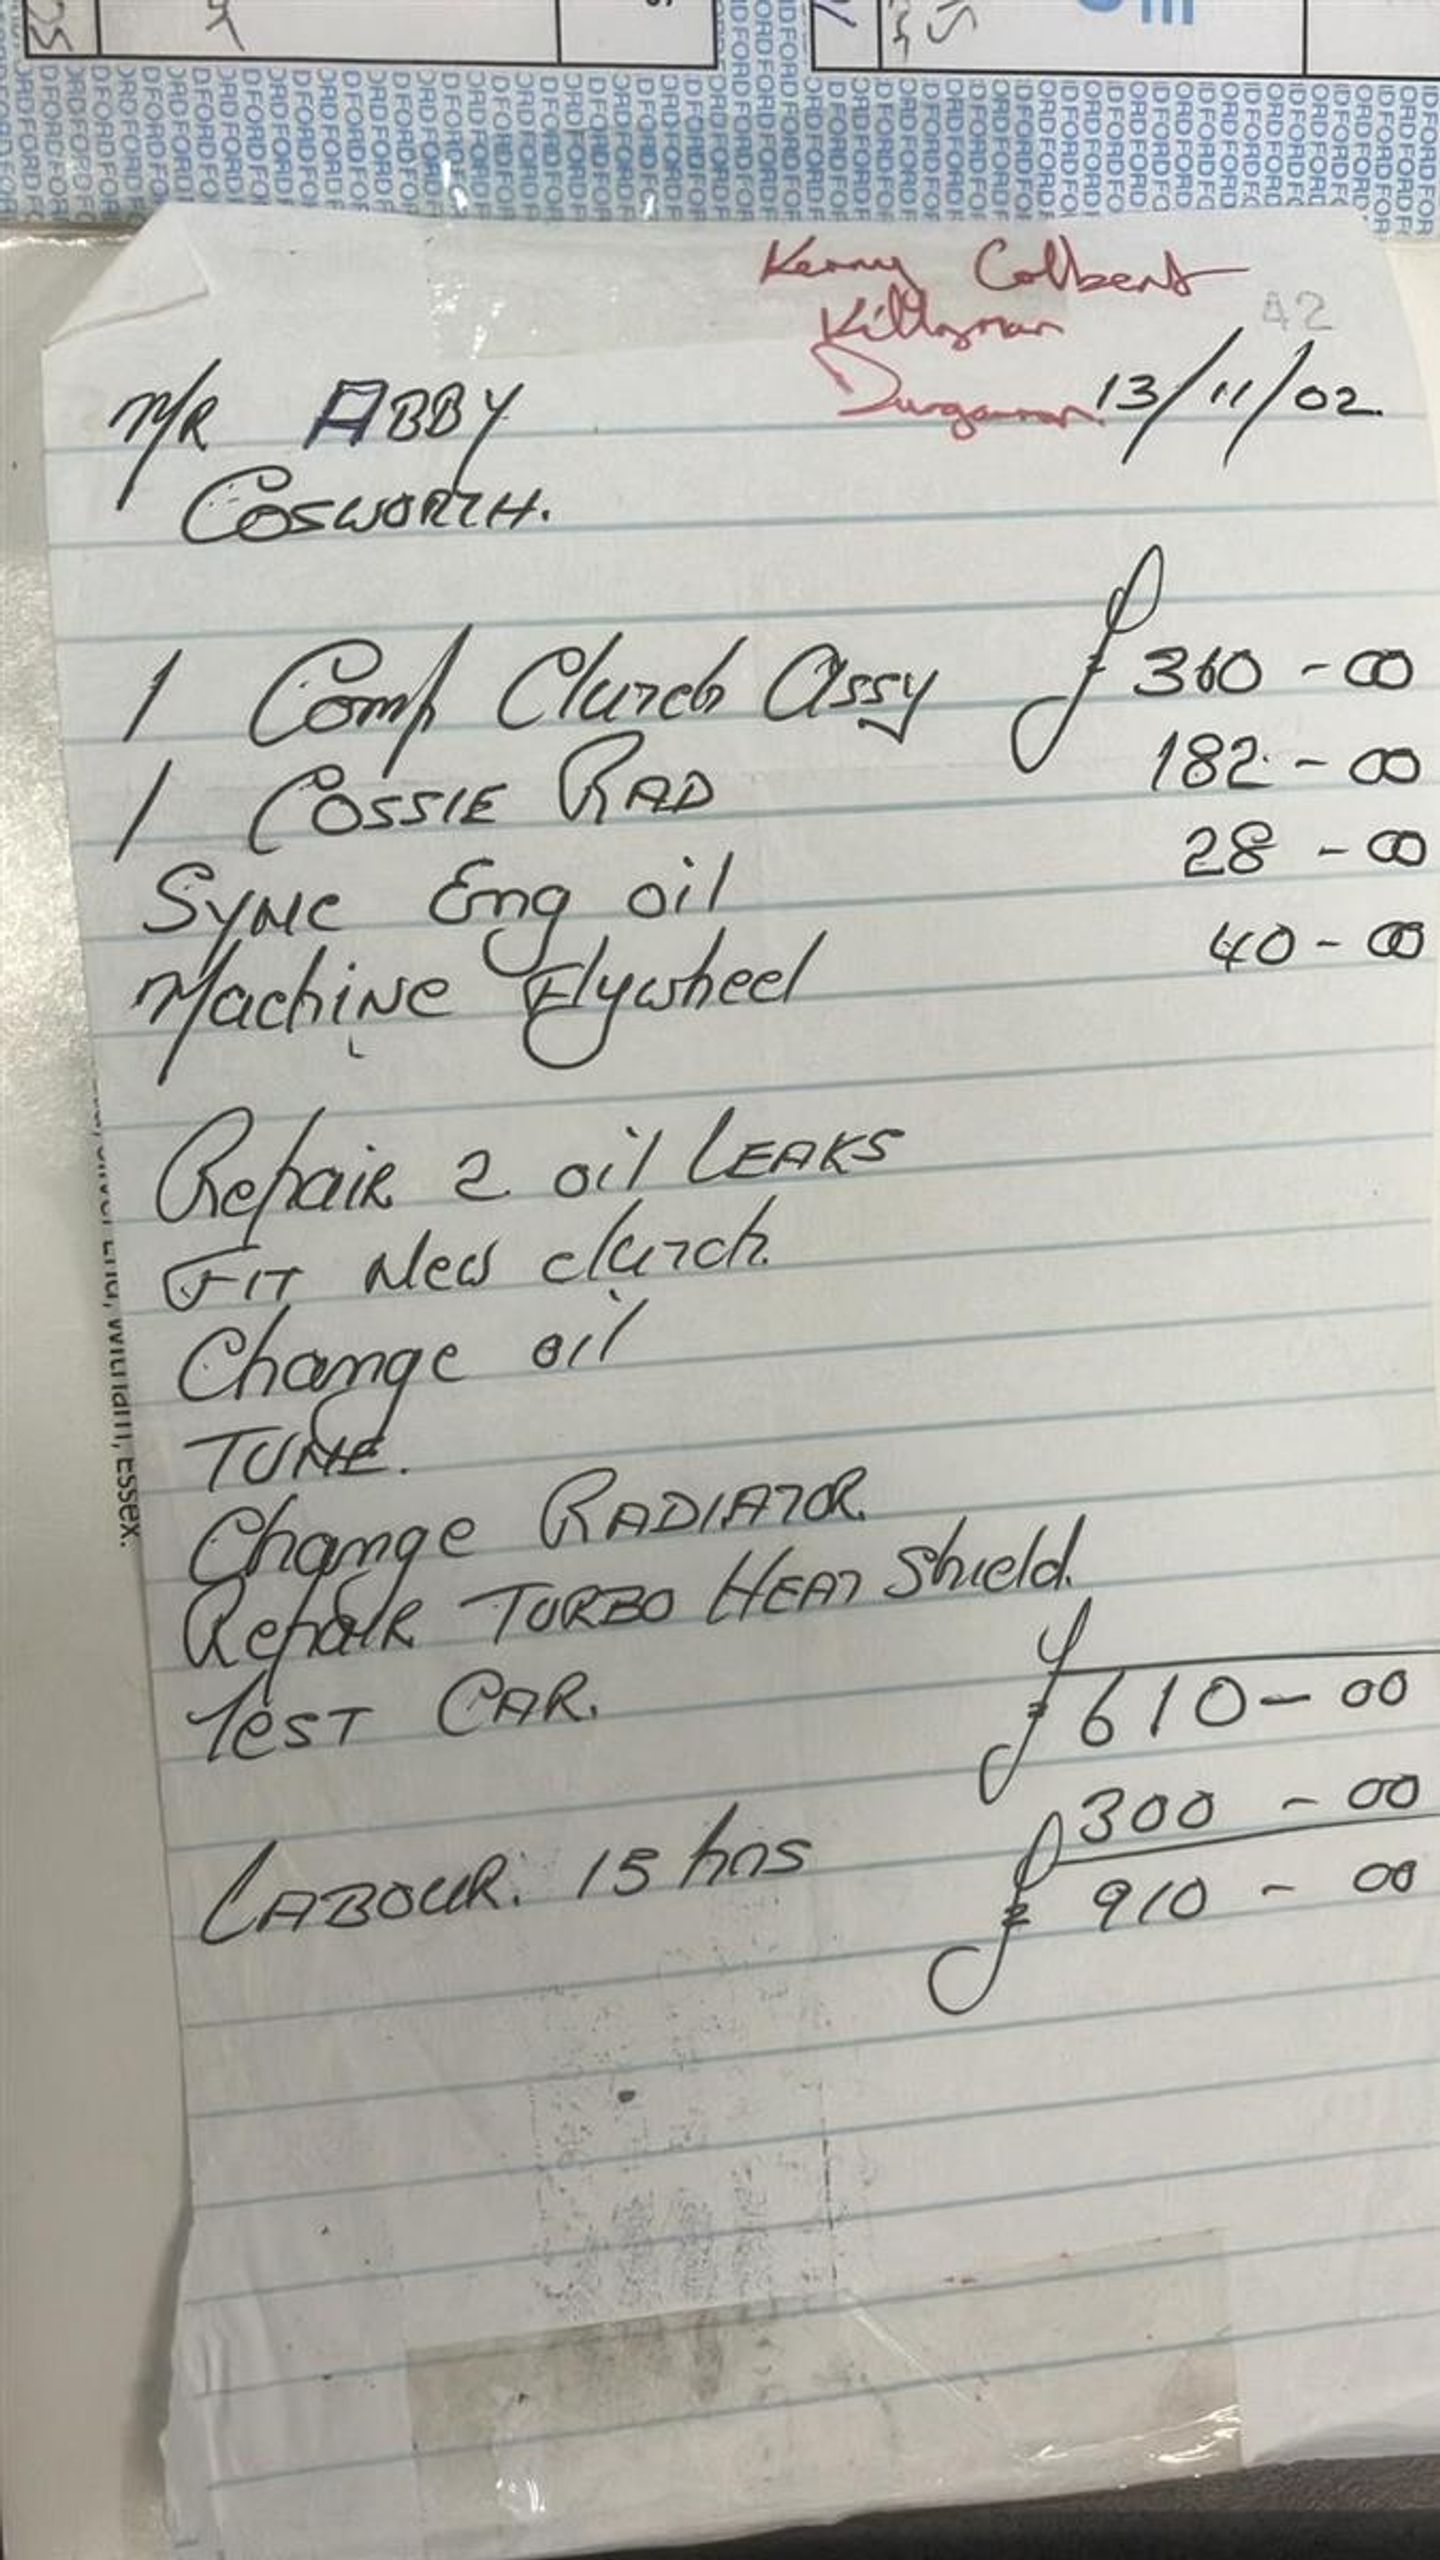 Kenny Colbert
Killyman
Dungannon
42
13/11/02
M/R ABBY
COSWORTH.
1 Comp Clutch Assy £ 360-00
1 COSSIE RAD 182-00
SYNC Eng oil 28-00
Machine Flywheel 40-00
Repair 2 oil LEAKS
FIT New clutch.
Change oil
TUNE.
Change RADIATOR.
Repair TURBO HEAT Shield.
TEST CAR.
£610-00
LABOUR: 15 hrs 300-00
£ 910-00
End, Witham, Essex.